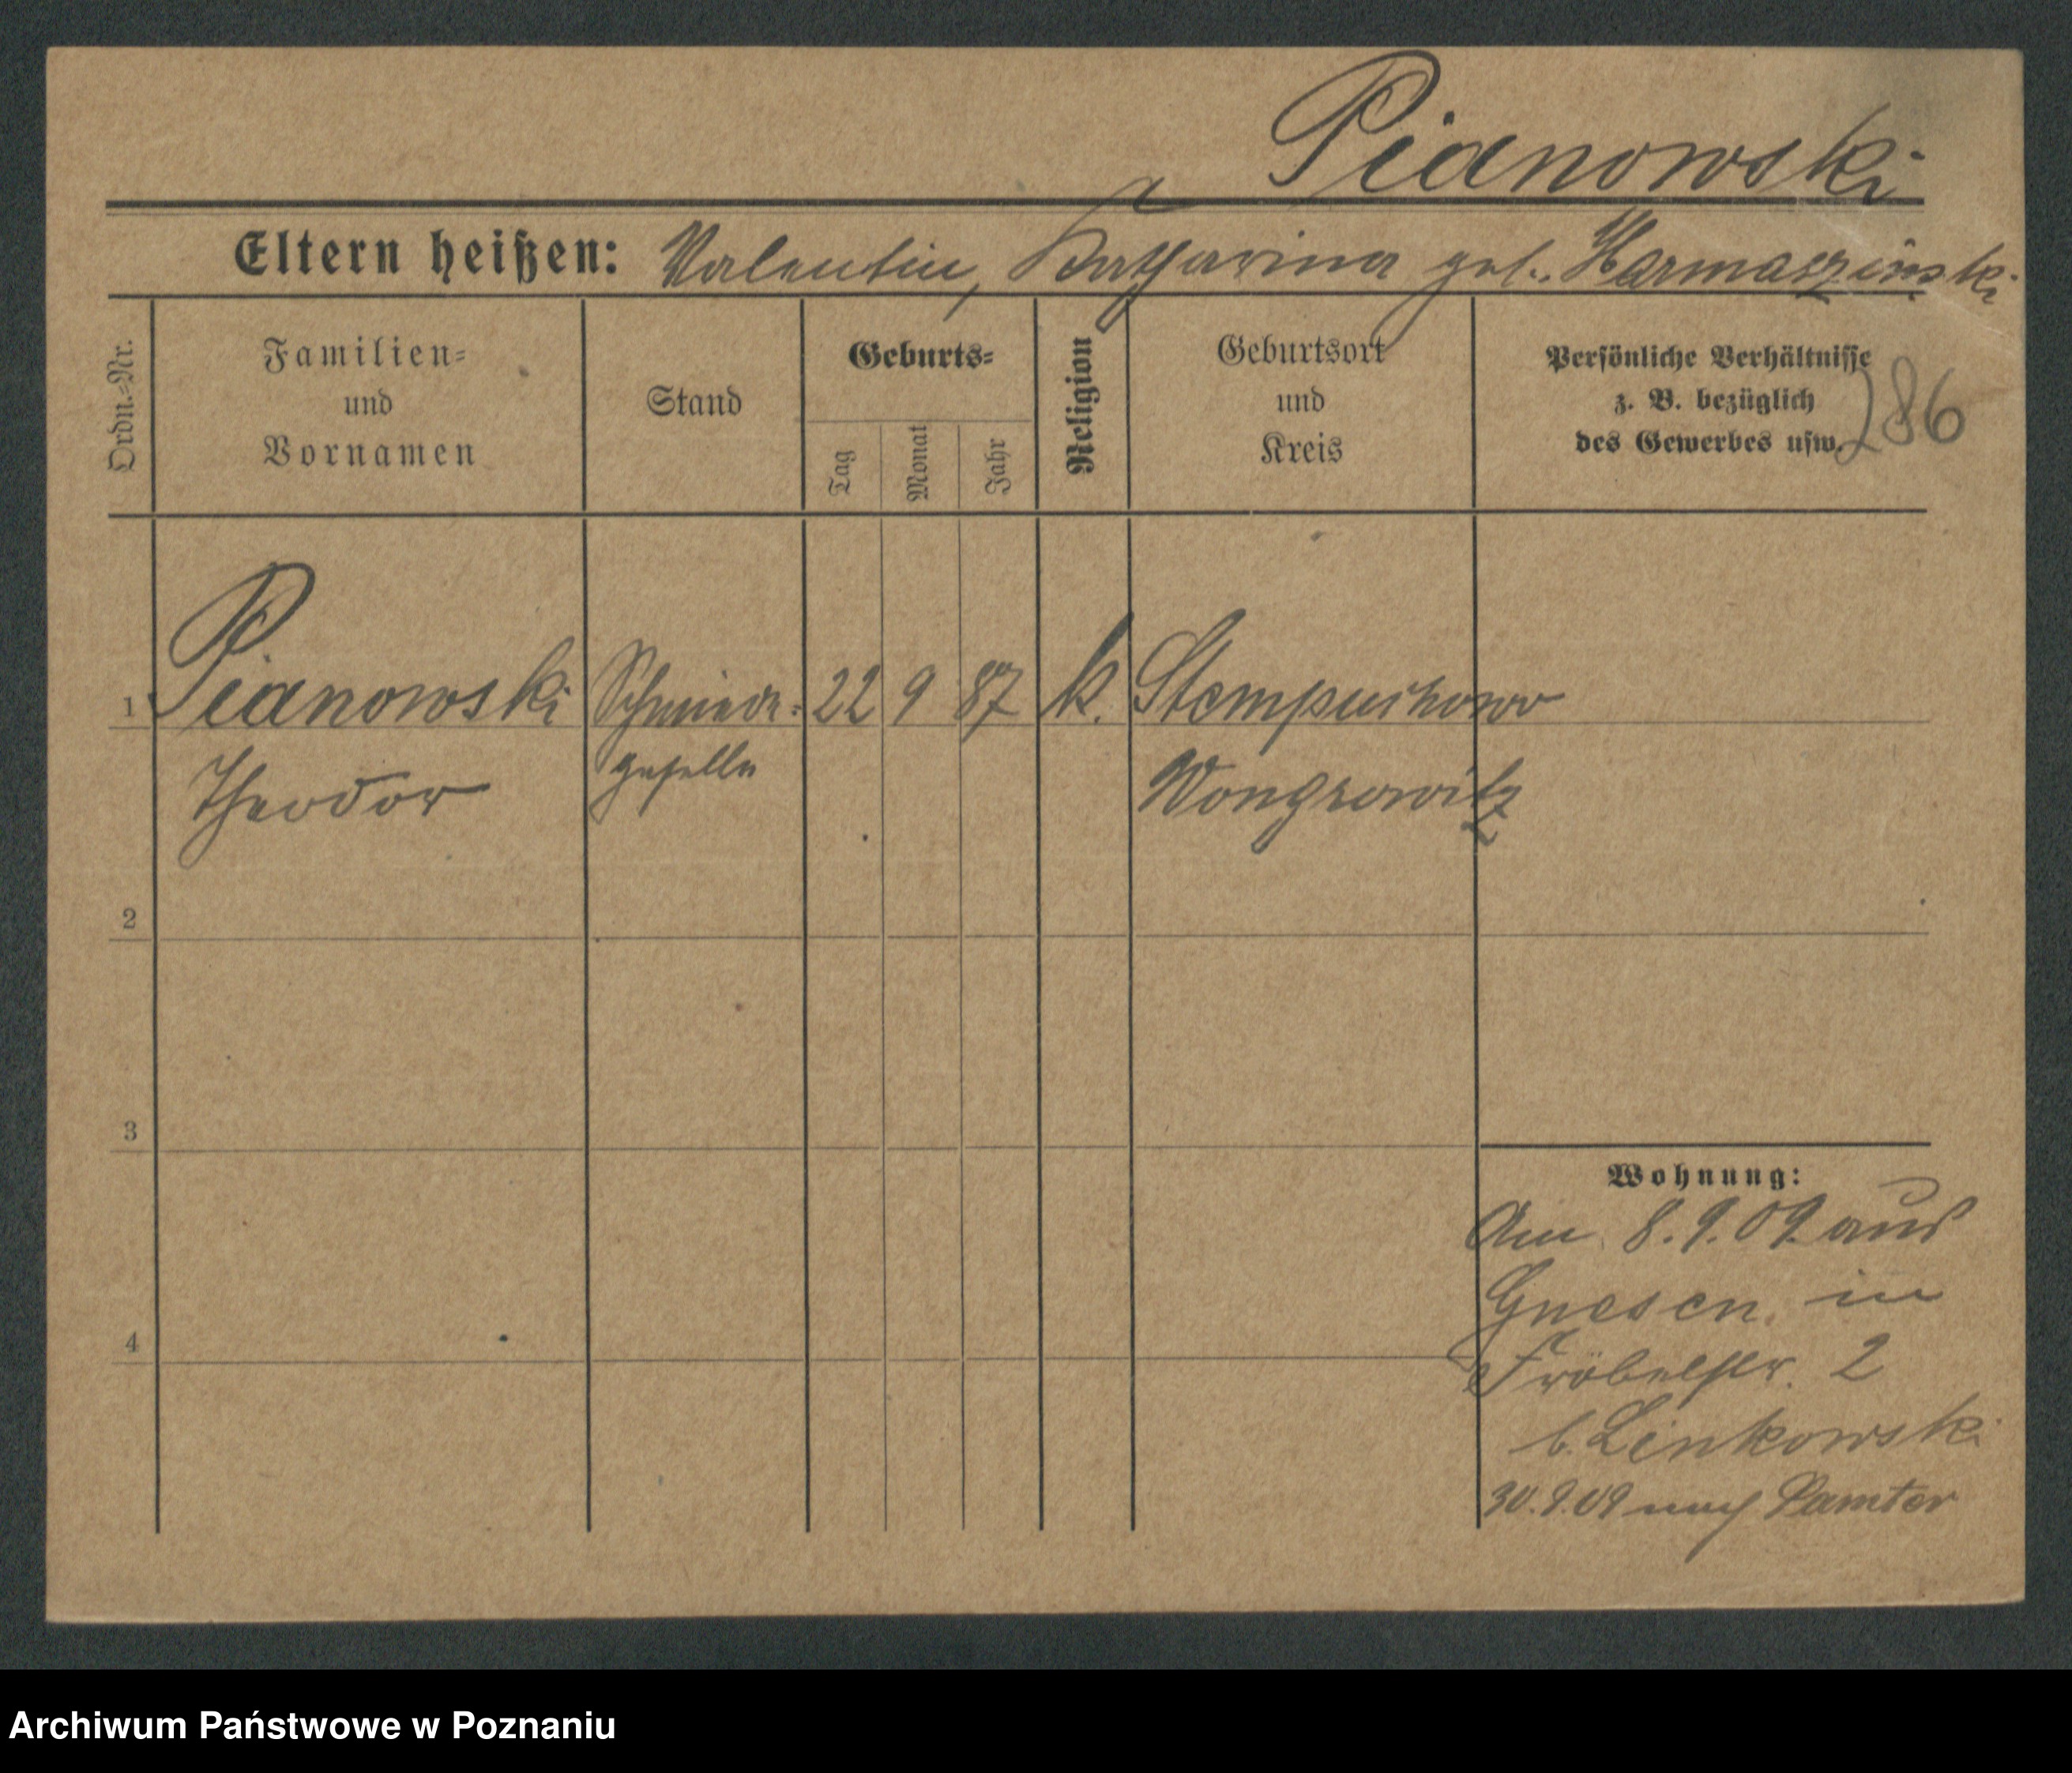 Pianowski
Eltern heißen: Valentin, Katharina geb. Harmaszinski
Ordn.=Nr.
Familien=
und
Vornamen
Stand
Geburts=
Tag
Monat
Jahr
Religion
Geburtsort
und
Kreis
Persönliche Verhältnisse
z. B. bezüglich
des Gewerbes usw.
286
1 Pianowski Schmiede= 22 9 87 k. Stempuchowo
Theodor geselle Wongrowitz
2
3
4
Wohnung:
Am 8.9.09. aus
Gnesen in
Fröbelstr. 2
b. Linkowski
30.9.09 nach Samter
Archiwum Państwowe w Poznaniu